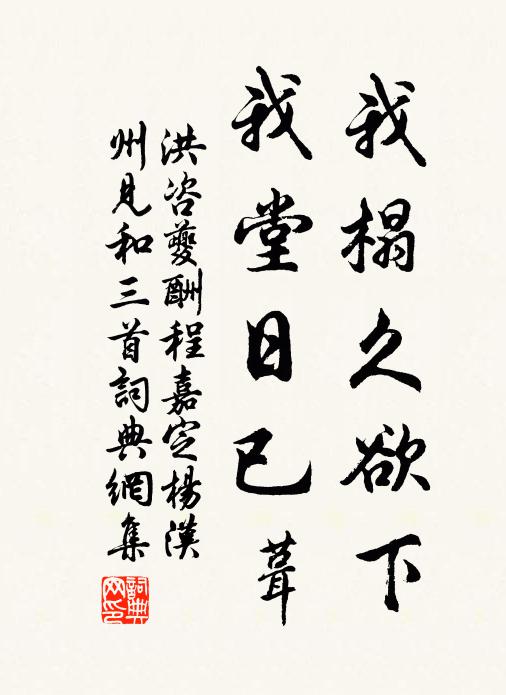 我榻久欲下
我堂日已葺
洪咨夔酬程嘉定楊漢
州見和三首詞典網集
詞典
网印